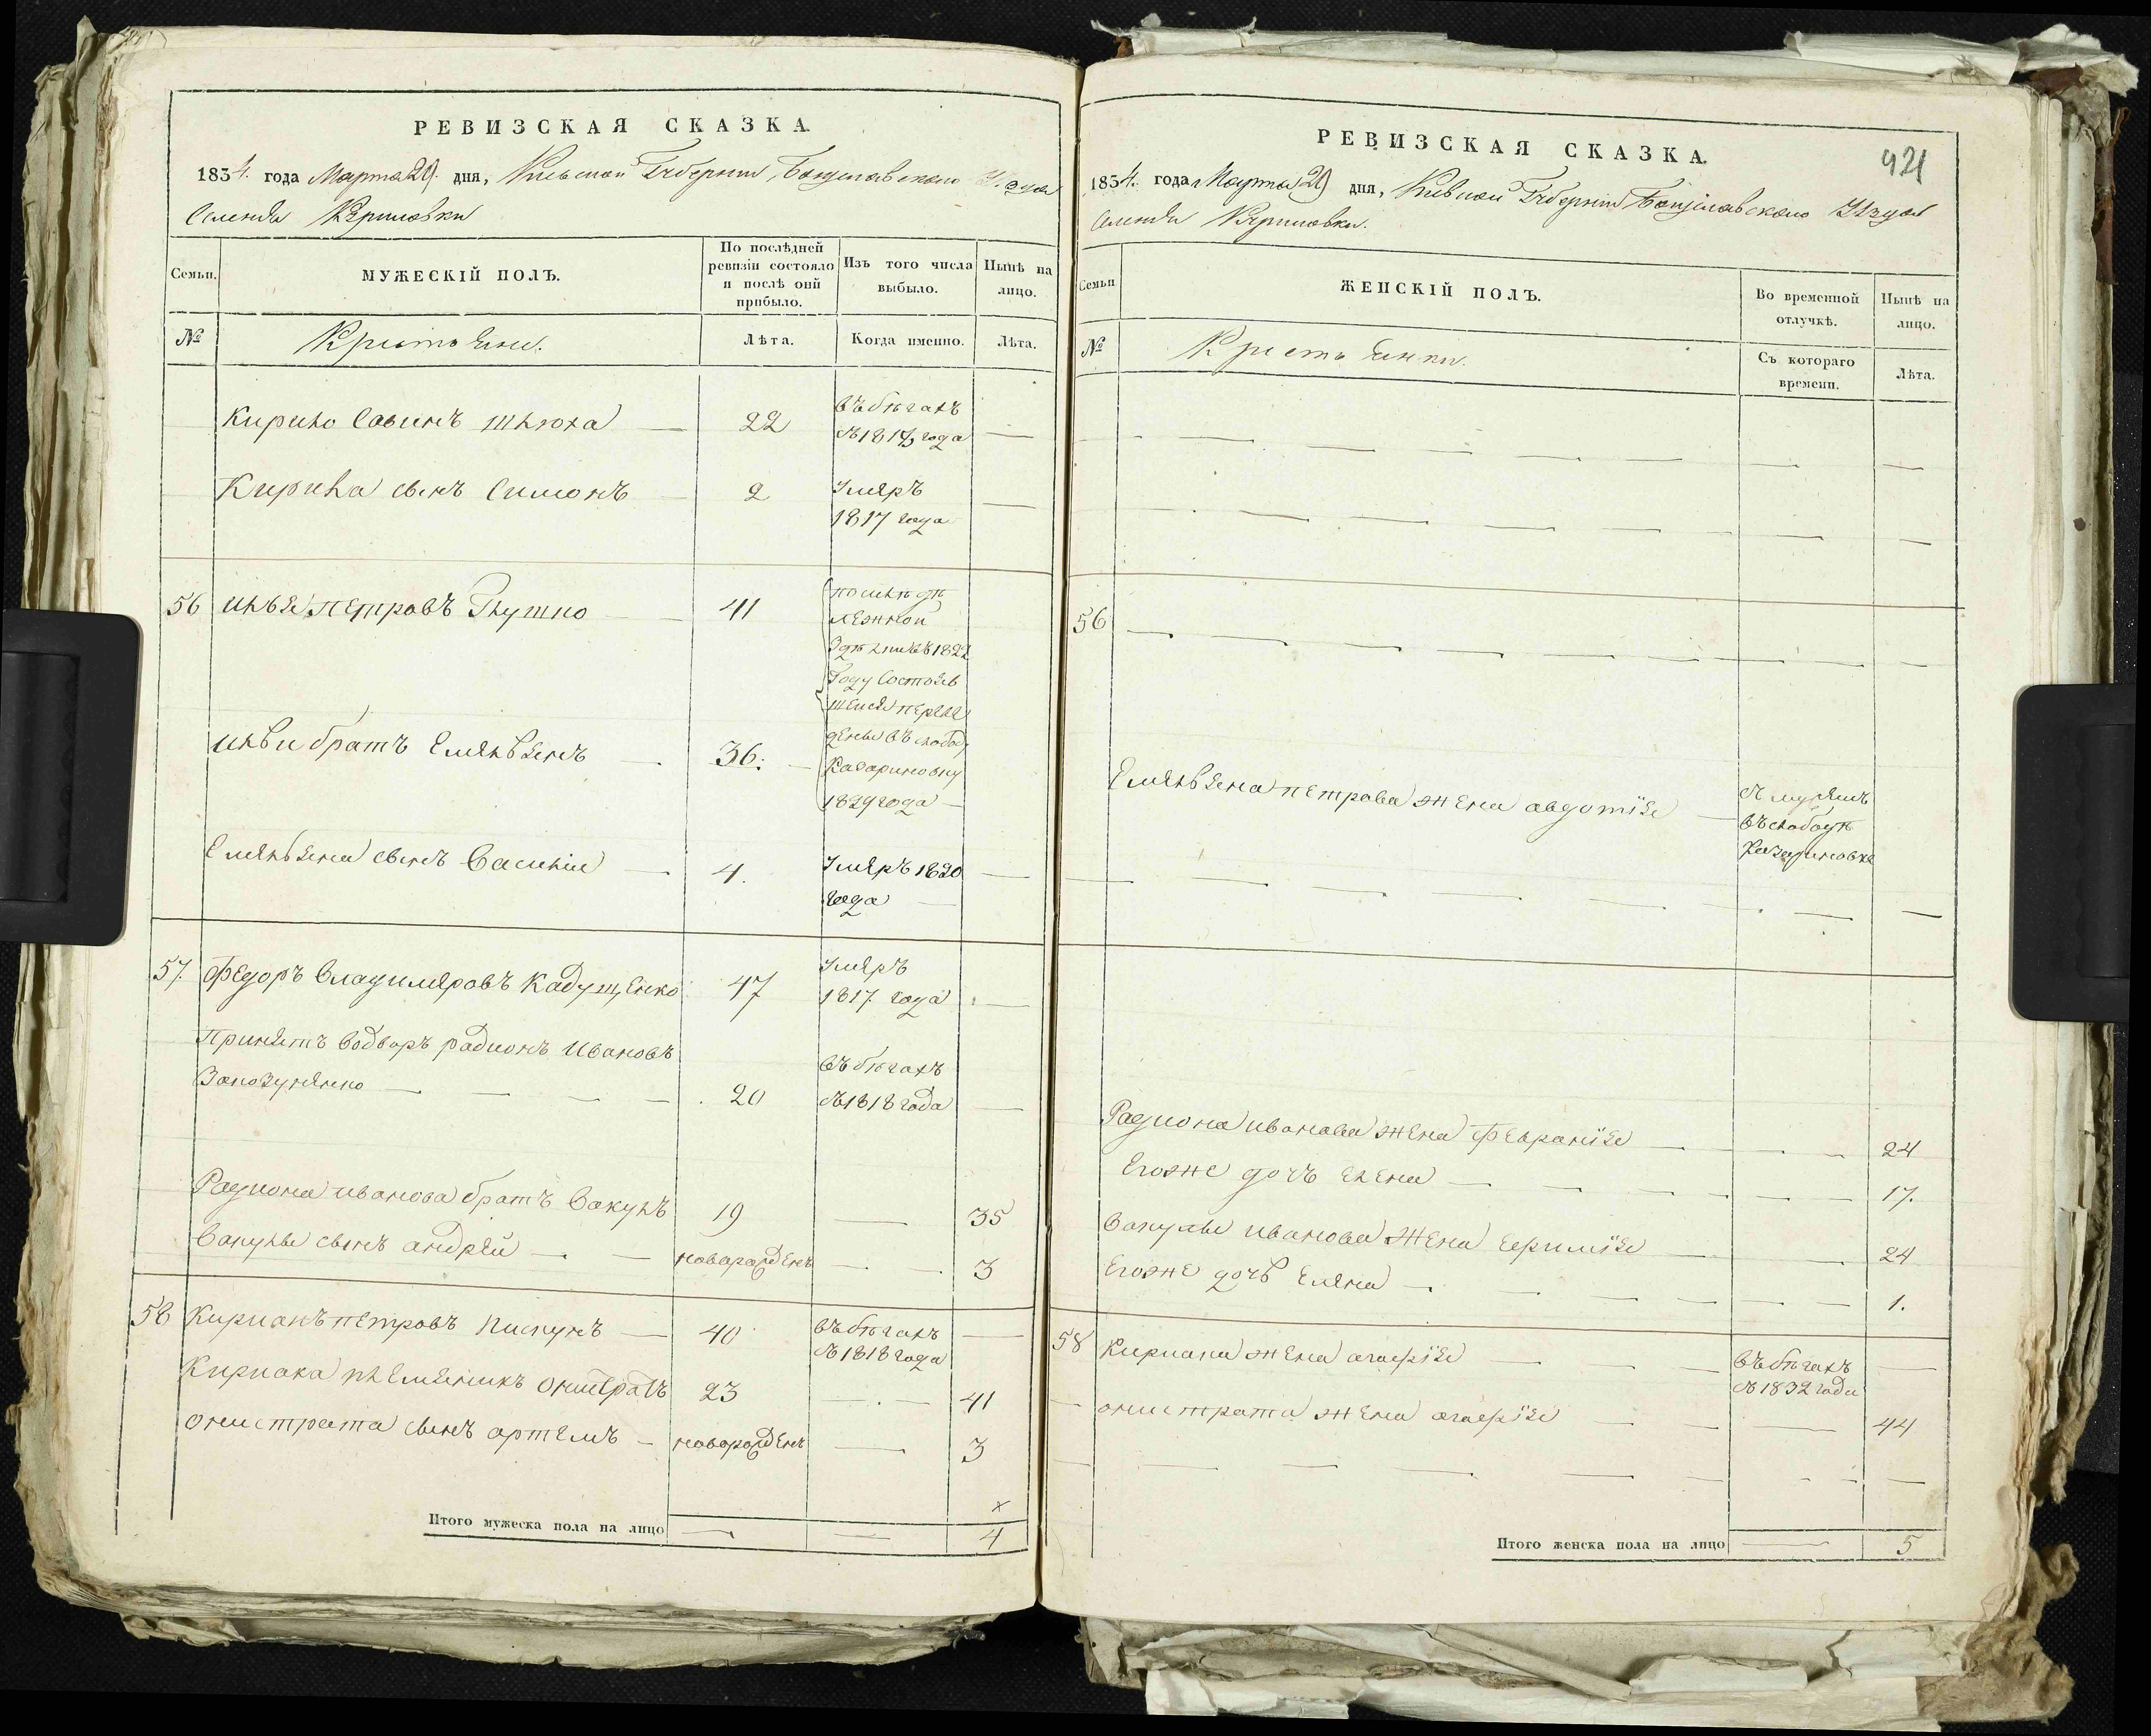 РЕВИЗСКАЯ СКАЗКА.
1834. года Марта 29. дня, Киевской Губернии, Богуславского Уезда
Селения Кириловки
Семьи.
МУЖЕСКІЙ ПОЛЪ.
По послѣдней ревизіи состояло и послѣ оной прибыло.
Изъ того числа выбыло.
Нынѣ на лицо.
№
Крестьяне.
Лѣта.
Когда именно.
Лѣта.
Кирило Савинъ
22
въ бѣгахъ
съ 1817 года
Кирила сынъ Симонъ
2
Умеръ
1817 года
56
Илья Петровъ
41
по
Году
1829 года
Ильи братъ Емельянъ
36.
Емельяна сынъ Василій
4.
Умеръ 1820
года
57.
Федоръ Владимеровъ
47
Умеръ
1817. года
Принятъ водворъ радионъ Ивановъ
20
въ бѣгахъ
съ 1818 года
Радиона иванова братъ Вакулъ
19
35
Вакулы сынъ андрей
новорожденъ
3
58
Кириакъ петровъ пискунъ
40
въ бѣгахъ
съ 1818 года
Кириака племяникъ онистратъ
23
41
онистрата сынъ артемъ
новорожденъ
3
Итого мужеска пола на лицо
4
РЕВИЗСКАЯ СКАЗКА.
421
1834. года Марта 29 дня, Киевской Губернии Богуславского Уезда
Селения Кириловки.
Семьи
ЖЕНСКІЙ ПОЛЪ.
Во временной отлучкѣ.
Нынѣ на лицо.
№
Крестьянки.
Съ котораго времени.
Лѣта.
56
Емельяна петрова жена авдотія
съ мужемъ
въ слободѣ
Радиона иванова жена Февронія
24
Егоже дочь елена
17.
Вакулы иванова жена
24
Егоже дочь
1.
58
Кириака жена агафія
въ бѣгахъ
съ 1832 года
онистрата жена агафія
44
Итого женска пола на лицо
5